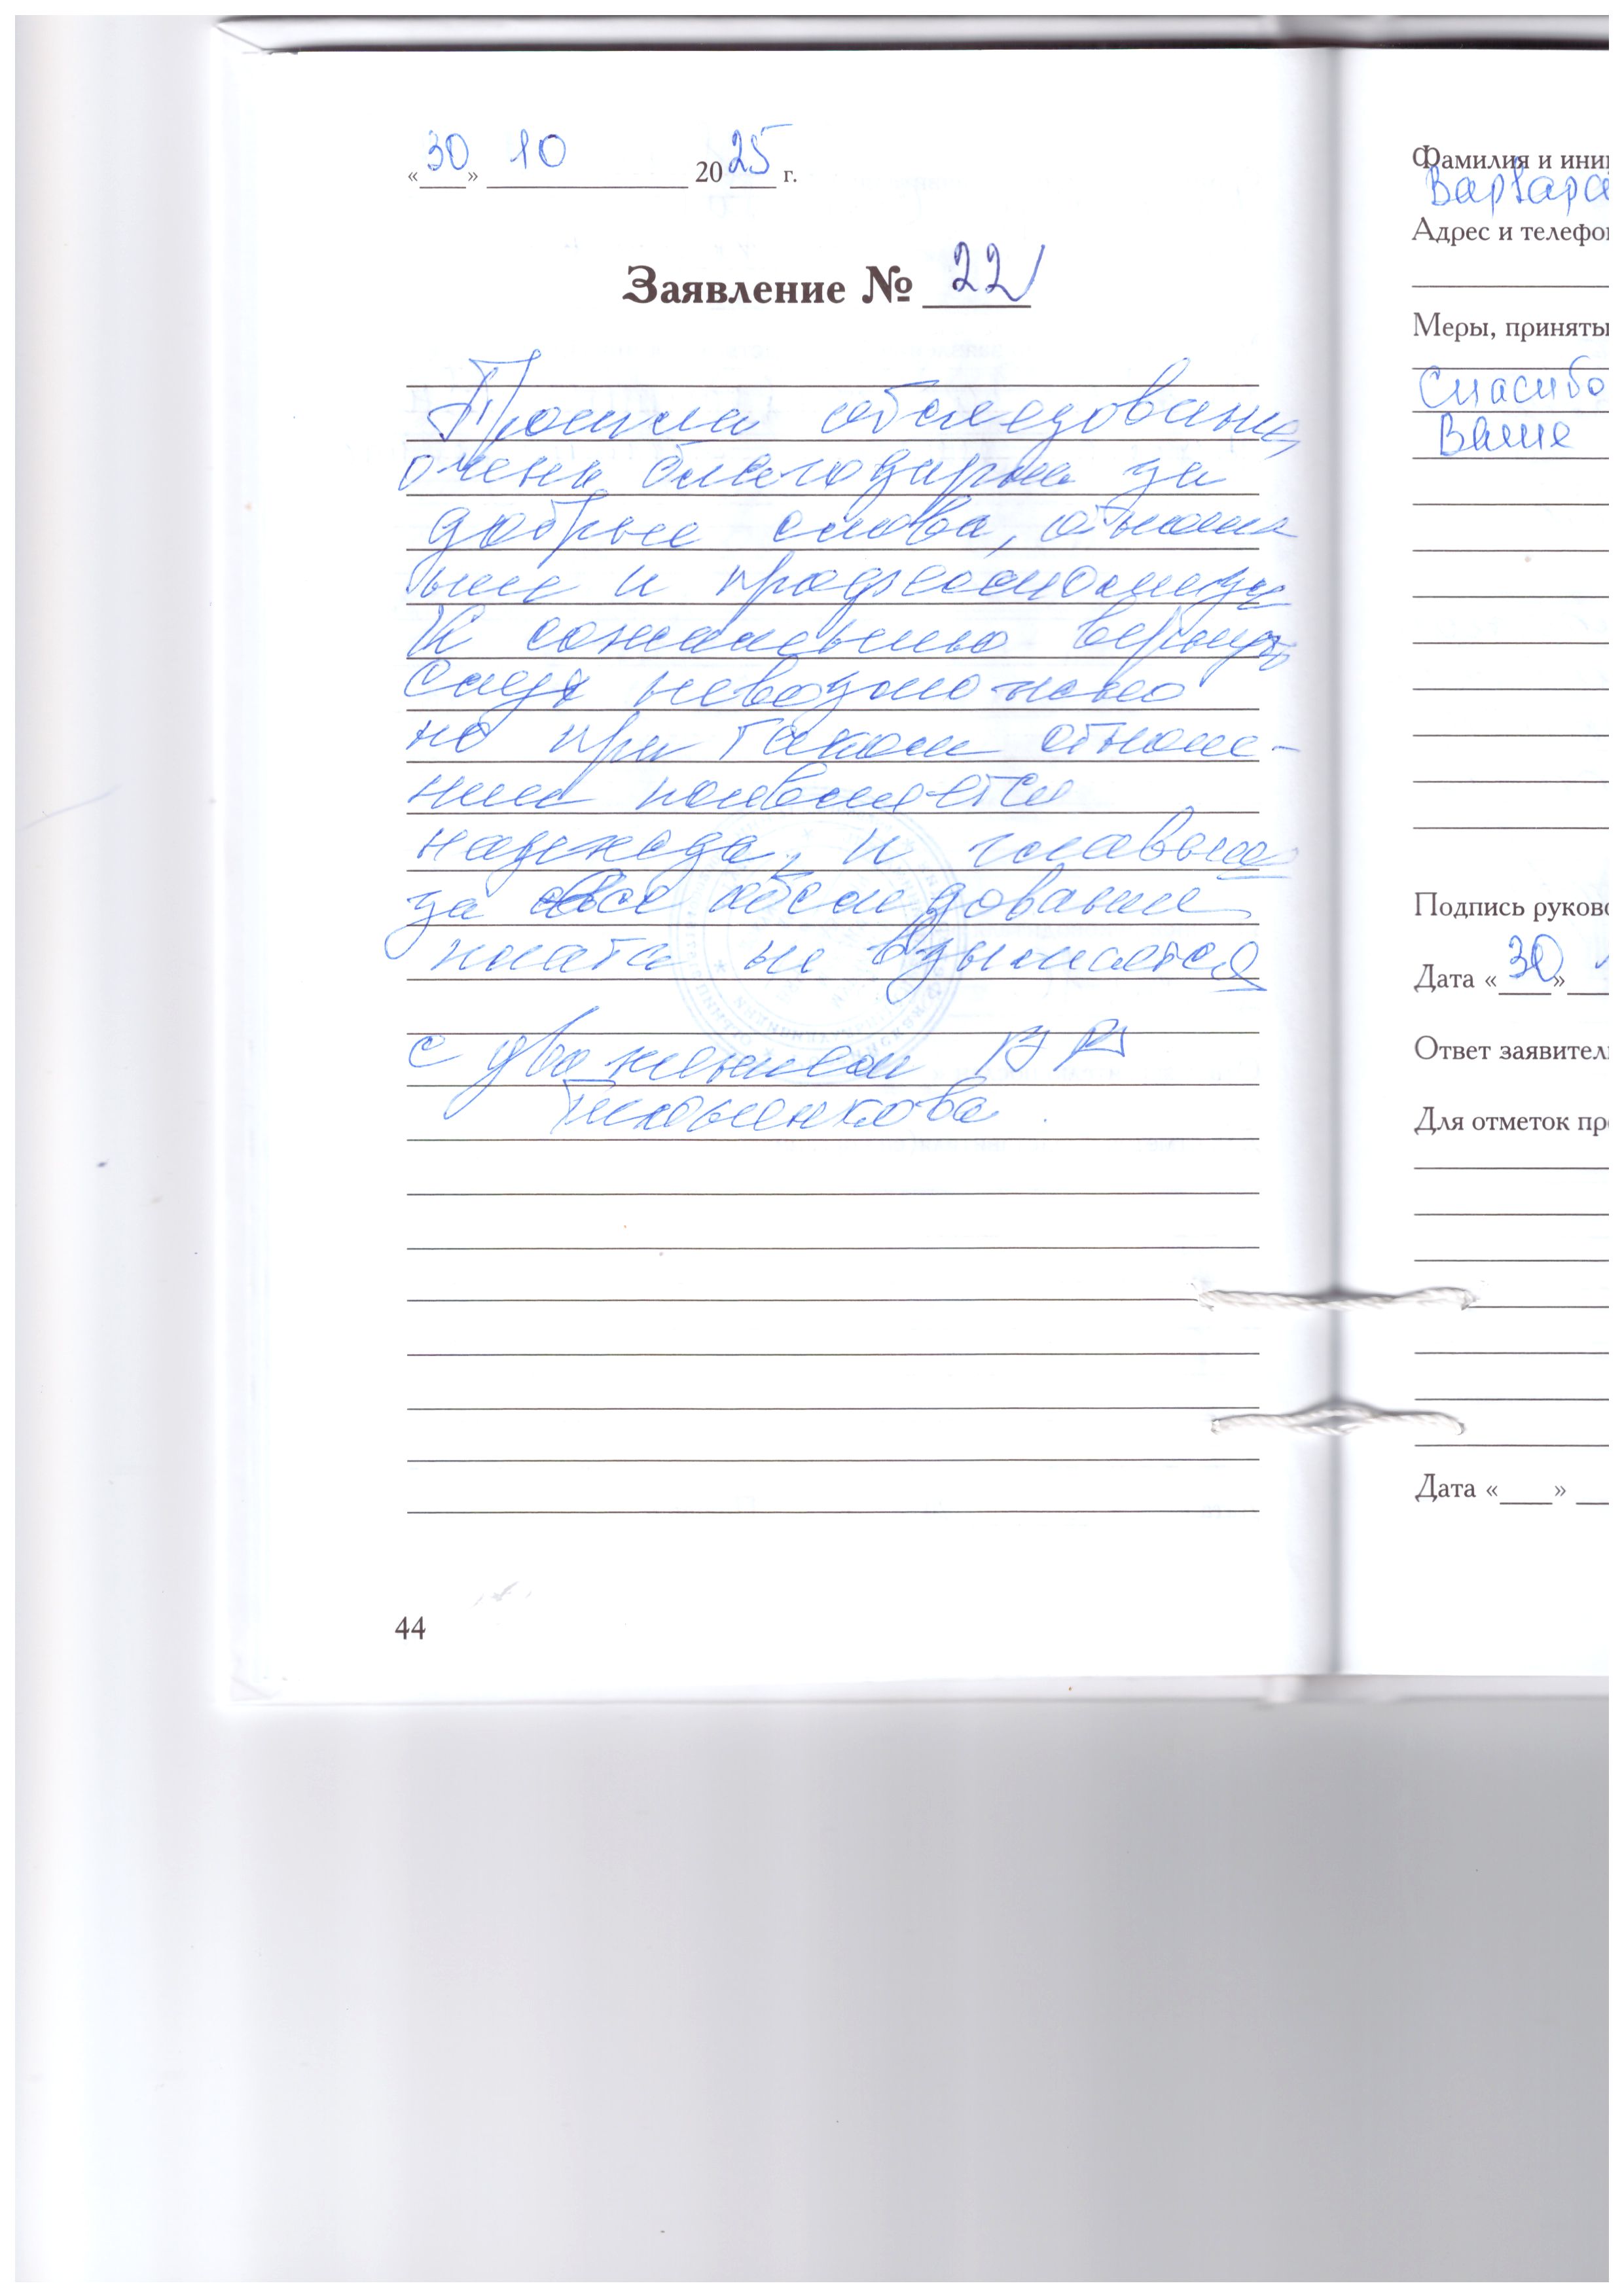 «30» 10 2025 г.
Заявление № 22
Прошли обследование,
очень благодарна за
добрые слова, отноше
ние и профессионализм
К сожалению вернуть
слух невозможно
но при таком отноше-
нии появляется
надежда, и главное
за все обследование
плата не взымается
с уважением
44
Фамилия и ини
Варвара
Адрес и телефо
Меры, приняты
Спасибо
Ваше
Подпись руково
Дата «30»
Ответ заявител
Для отметок пр
Дата « »